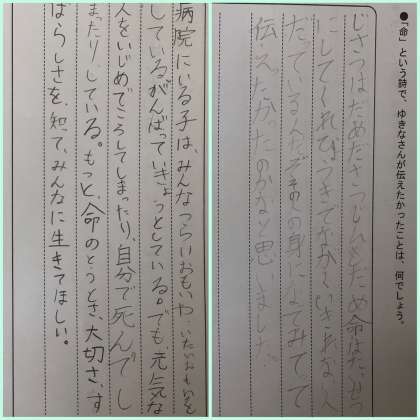 ●「命」という詩で、ゆきなさんが伝えたかったことは、何でしょう。
じさつはだめださつじんもだめ命はたいせつ
にしてくれびょうきでながくいきれない人
だっているんだぞその身によてみてって
伝えたかったのかなと思いました。
病院にいる子は、みんなつらいおもいや、いたいおもいを
している。がんばっていきようとしている。でも、元気な
人をいじめでころしてしまったり、自分で死んでし
まったり、している。もっと、命のとうとさ、大切さ、す
ばらしさを、知って、みんなに生きてほしい。